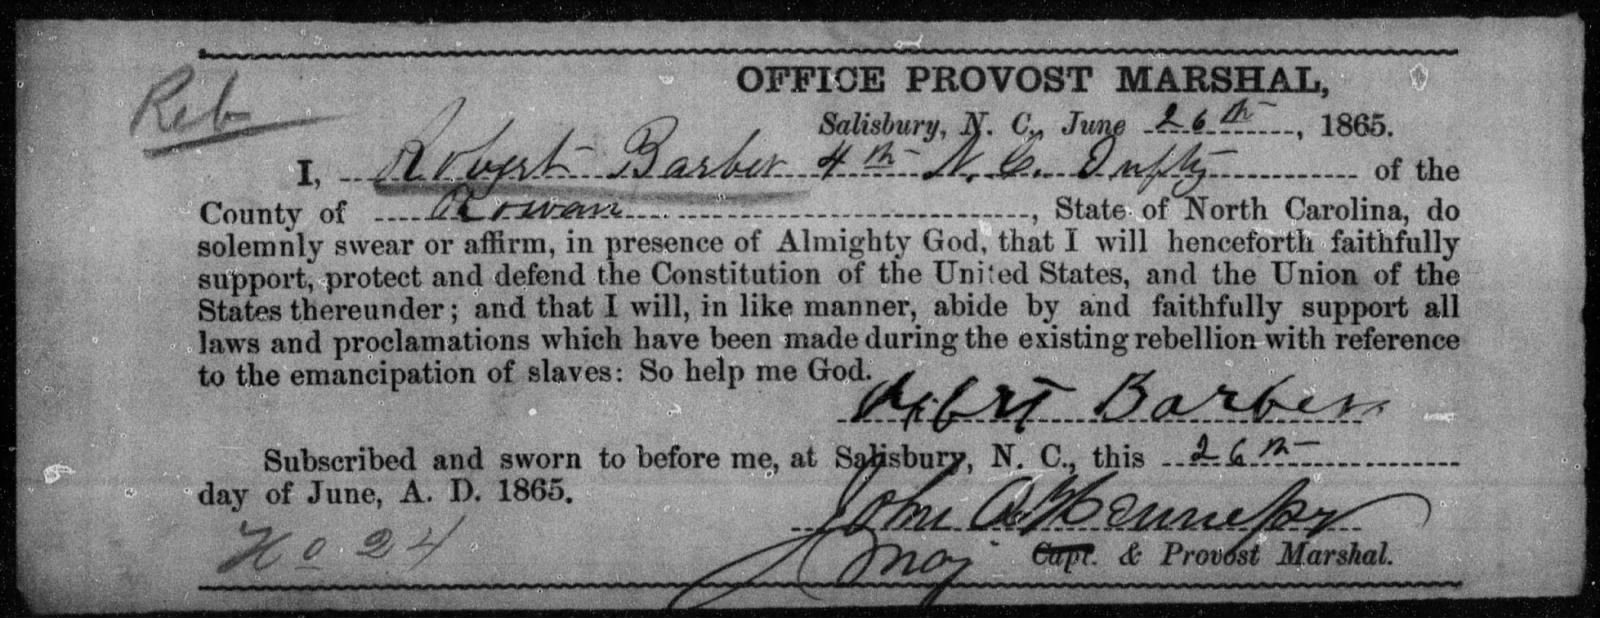 OFFICE PROVOST MARSHAL,
Reb
Salisbury, N. C., June 26th, 1865.
I, Robert Barber 4th N. C. Infty of the
County of Rowan, State of North Carolina, do
solemnly swear or affirm, in presence of Almighty God, that I will henceforth faithfully
support, protect and defend the Constitution of the United States, and the Union of the
States thereunder; and that I will, in like manner, abide by and faithfully support all
laws and proclamations which have been made during the existing rebellion with reference
to the emancipation of slaves: So help me God.
Robert Barber
Subscribed and sworn to before me, at Salisbury, N. C., this 26th
day of June, A. D. 1865.
John A. Hennessy
No 24
Maj Capt. & Provost Marshal.